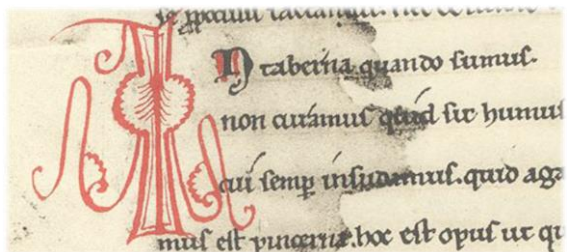 IN taberna quando sumus.
non curamus quid sit humus
cui semꝑ insudamus. quid aga
mus est pincerna. hoc est opus ut qu